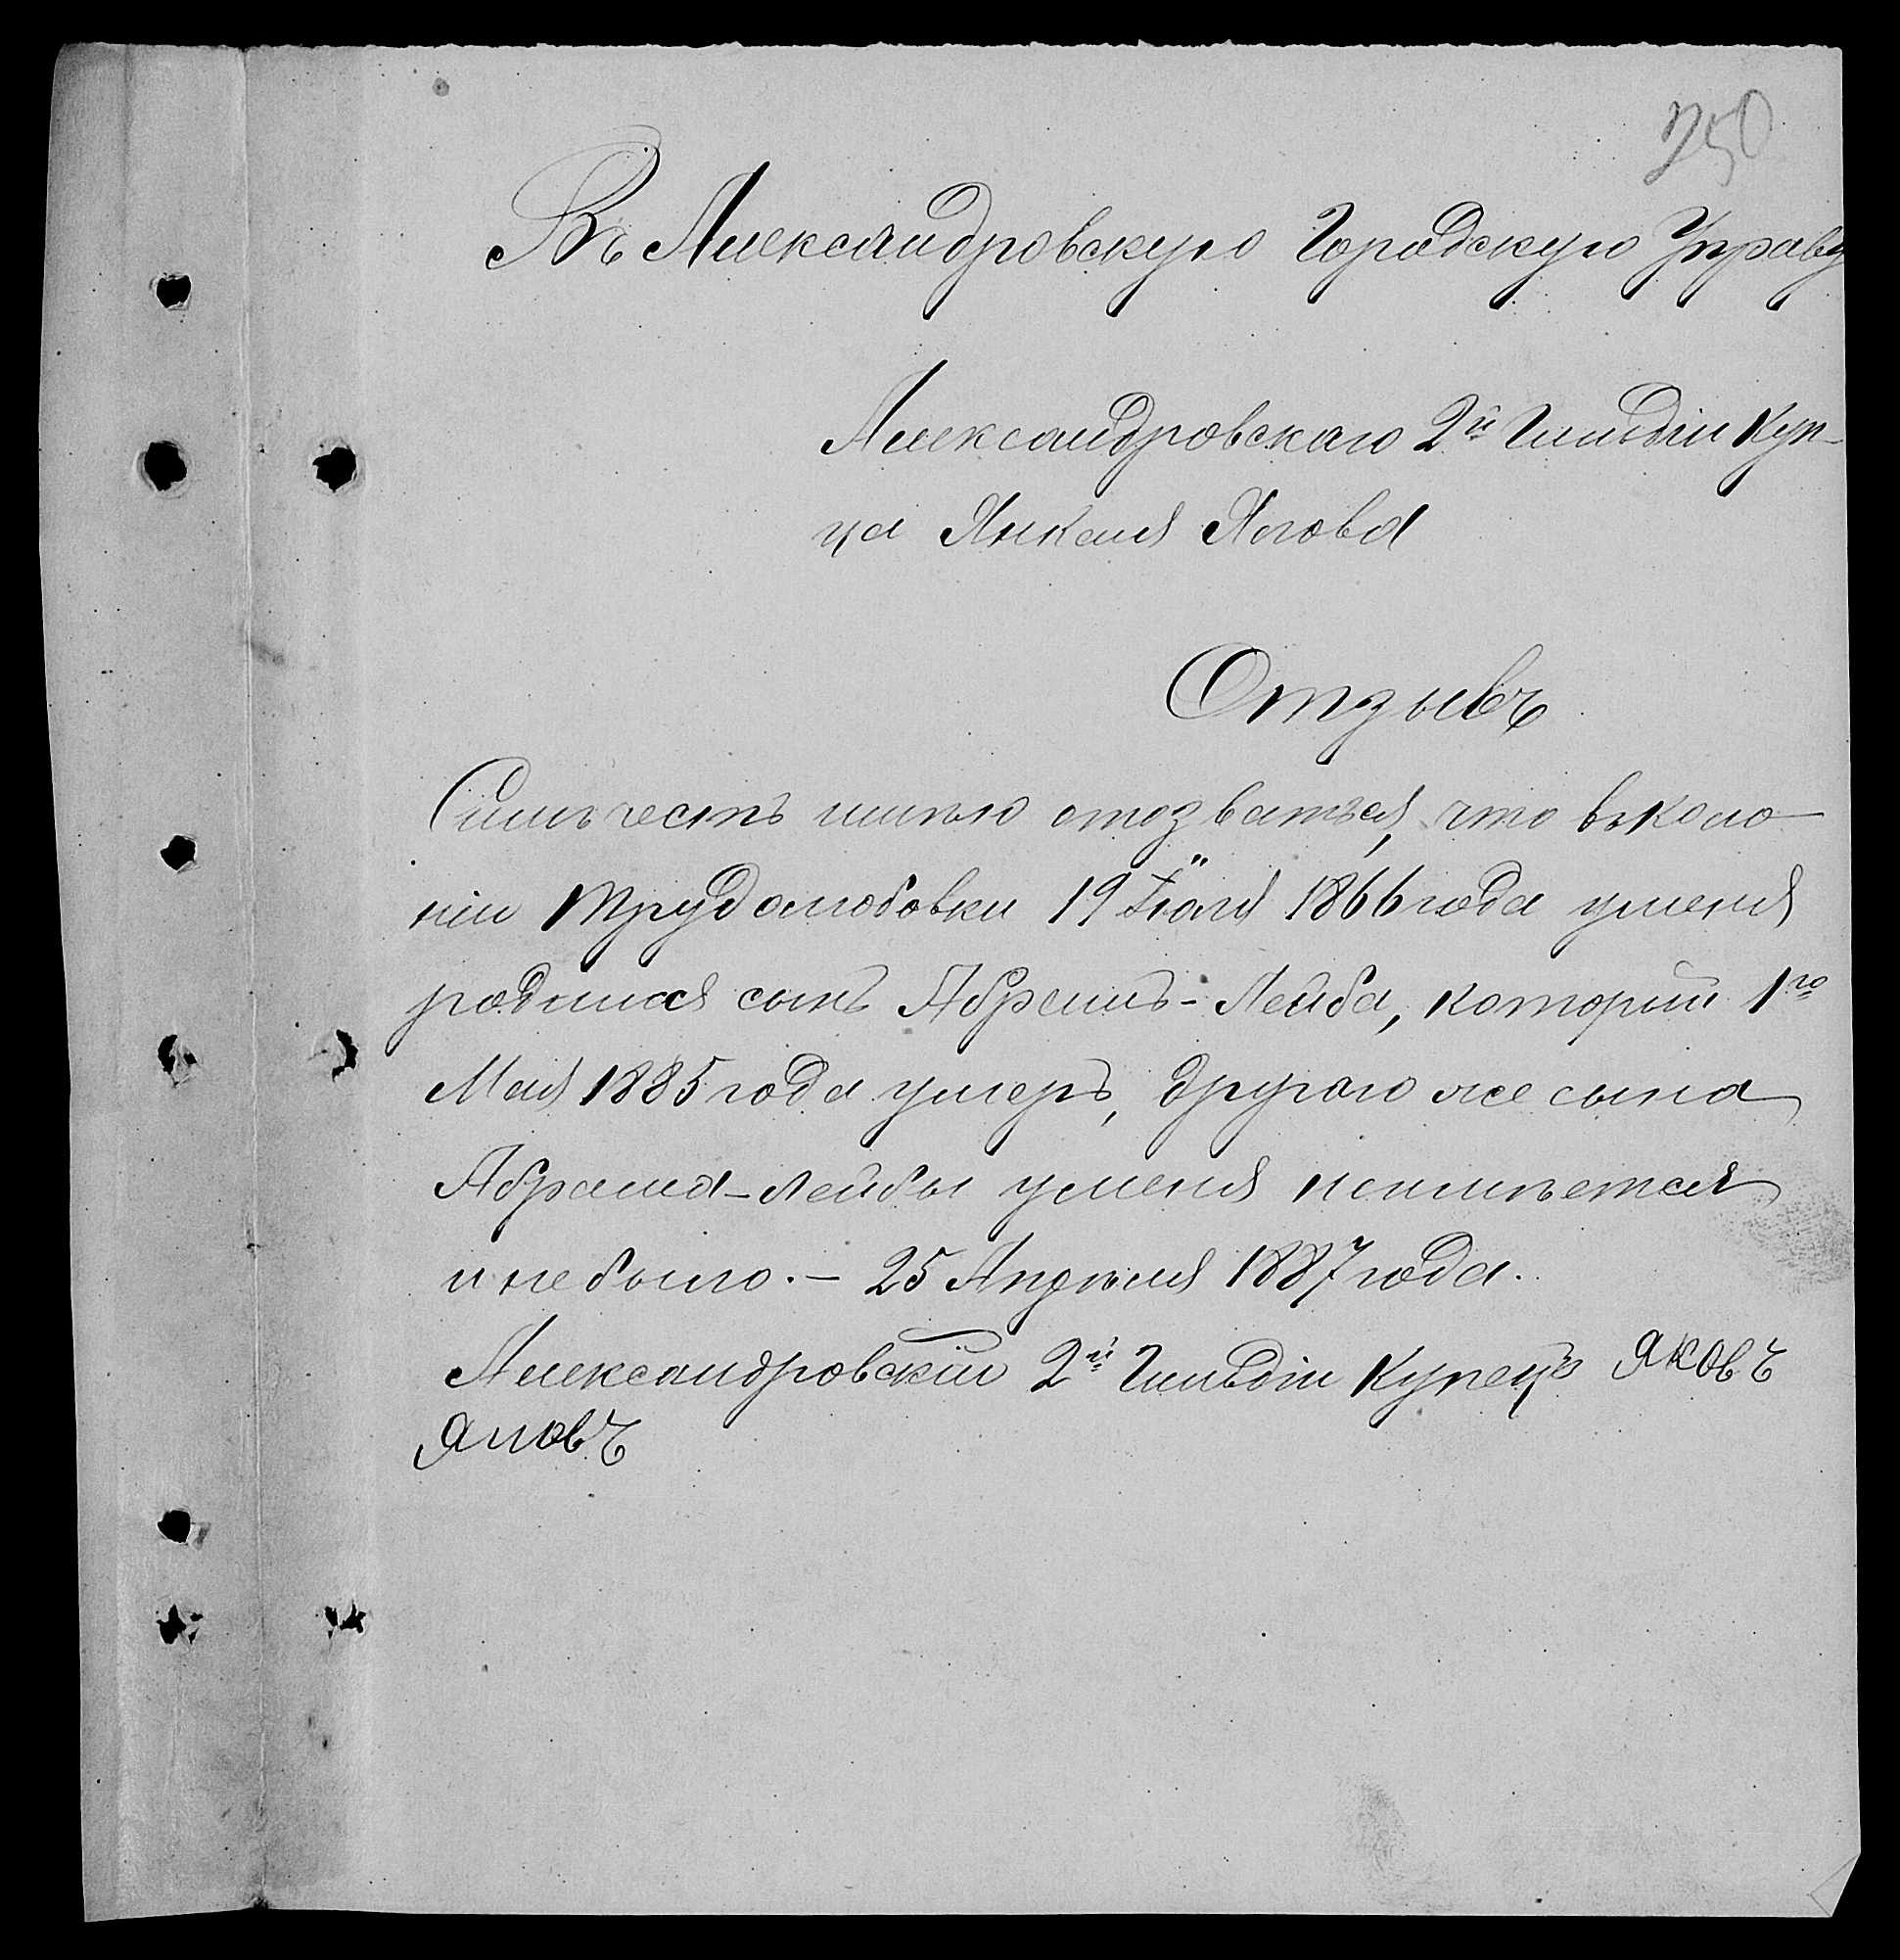 750
Въ Александровскую Городскую Управу
Александровскаго 2й Гильдіи Куп-
ца Янкеля Ялова
Отзывъ
Симъ честь имѣю отозваться, что въ коло-
ніи Трудолюбовки 19 Іюля 1866 года у меня
родился сынъ Абрамъ-Лейба, который 1го
Мая 1885 года умеръ, другого же сына
Абрама-Лейбы у меня неимѣется
и небыло.- 25 Апрѣля 1887 года.
Александровскій 2й Гильдіи Купецъ Яковъ
Яловъ